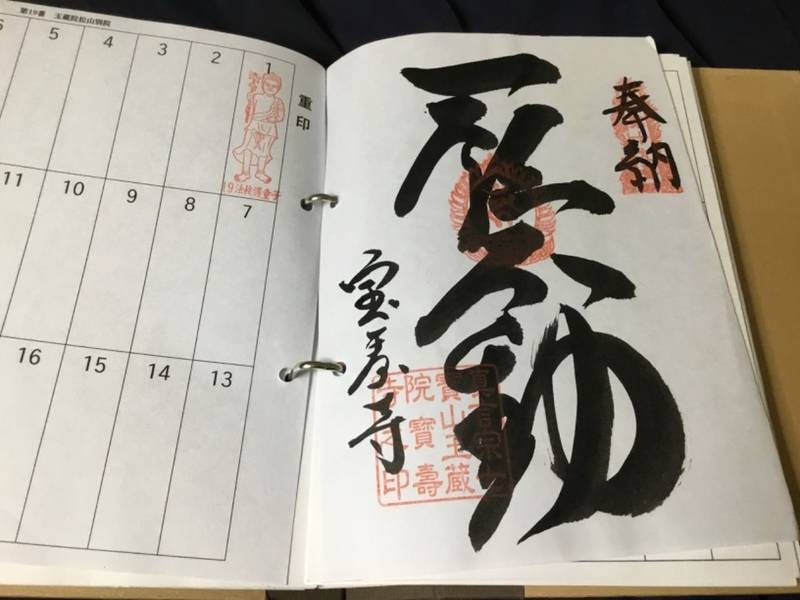 第19番 玉蔵院松山別院
重印
1
2
3
4
5
6
19法枝得童子
7
8
9
10
11
13
14
15
16
奉納
不動
宝寿寺
真言宗
寶山玉蔵
院寶壽
寺之印